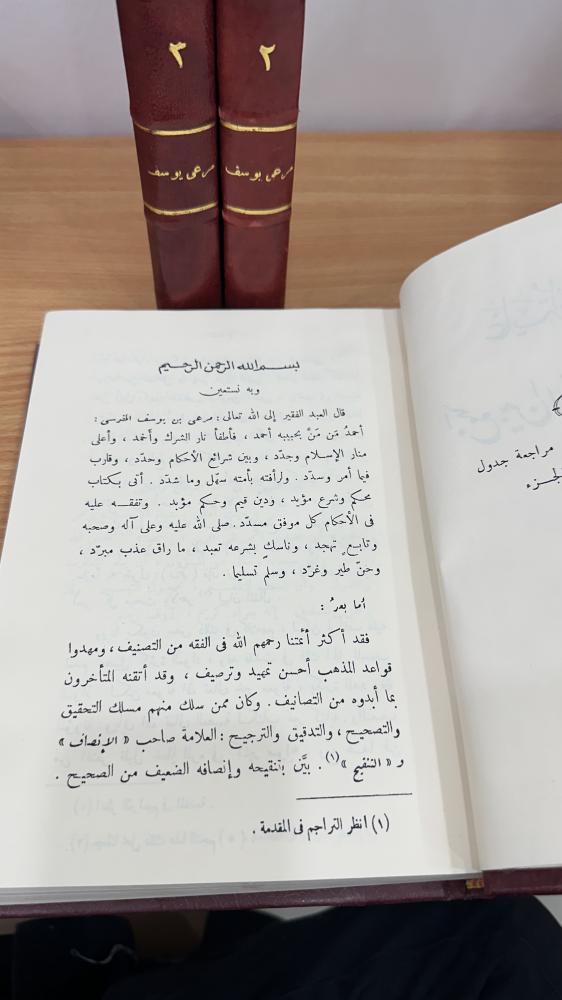 ٣
٢
مرعي يوسف
مرعي يوسف
بسم الله الرحمن الرحيم
وبه نستعين
قال العبد الفقير إلى الله تعالى: مرعى بن يوسف المقدسى:
أحمدُ مَن مَنَّ بحبيبه أحمد ، فأطفأ نار الشرك وأخمد ، وأعلى
منار الإسلام وجدّد ، وبين شرائع الأحكام وحدّد ، وقارب
فيما أمر وسدّد . ولرأفته بأمته سهّل وما شدّد . أتى بكتاب
محكم وشرع مؤيد ، ودين قيم وحكم مؤبد . وتفقــه عليه
فى الأحكام كل موفق مسدّد. صلى الله عليه وعلى آله وصحبه
وتابع تهجد ، وناسكٍ بشرعه تعبد ، ما راق عذب مبرّد ،
وحنّ طير وغرّد ، وسلم تسليما .
أما بعدُ :
فقد أكثر أئمتنا رحمهم الله فى الفقه من التصنيف ، ومهدوا
قواعد المذهب أحسن تمهيد وترصيف ، وقد أتقنه المتأخرون
بما أبدوه من التصانيف . وكان ممن سلك منهم مسلك التحقيق
والتصحيح ، والتدقيق والترجيح : العلامة صاحب « الإنصاف »
و « التنقيح »(١) . بيَّن بتنقيحه وإنصافه الضعيف من الصحيح .
(١) انظر التراجم فى المقدمة .
مراجعة جدول
الجزء